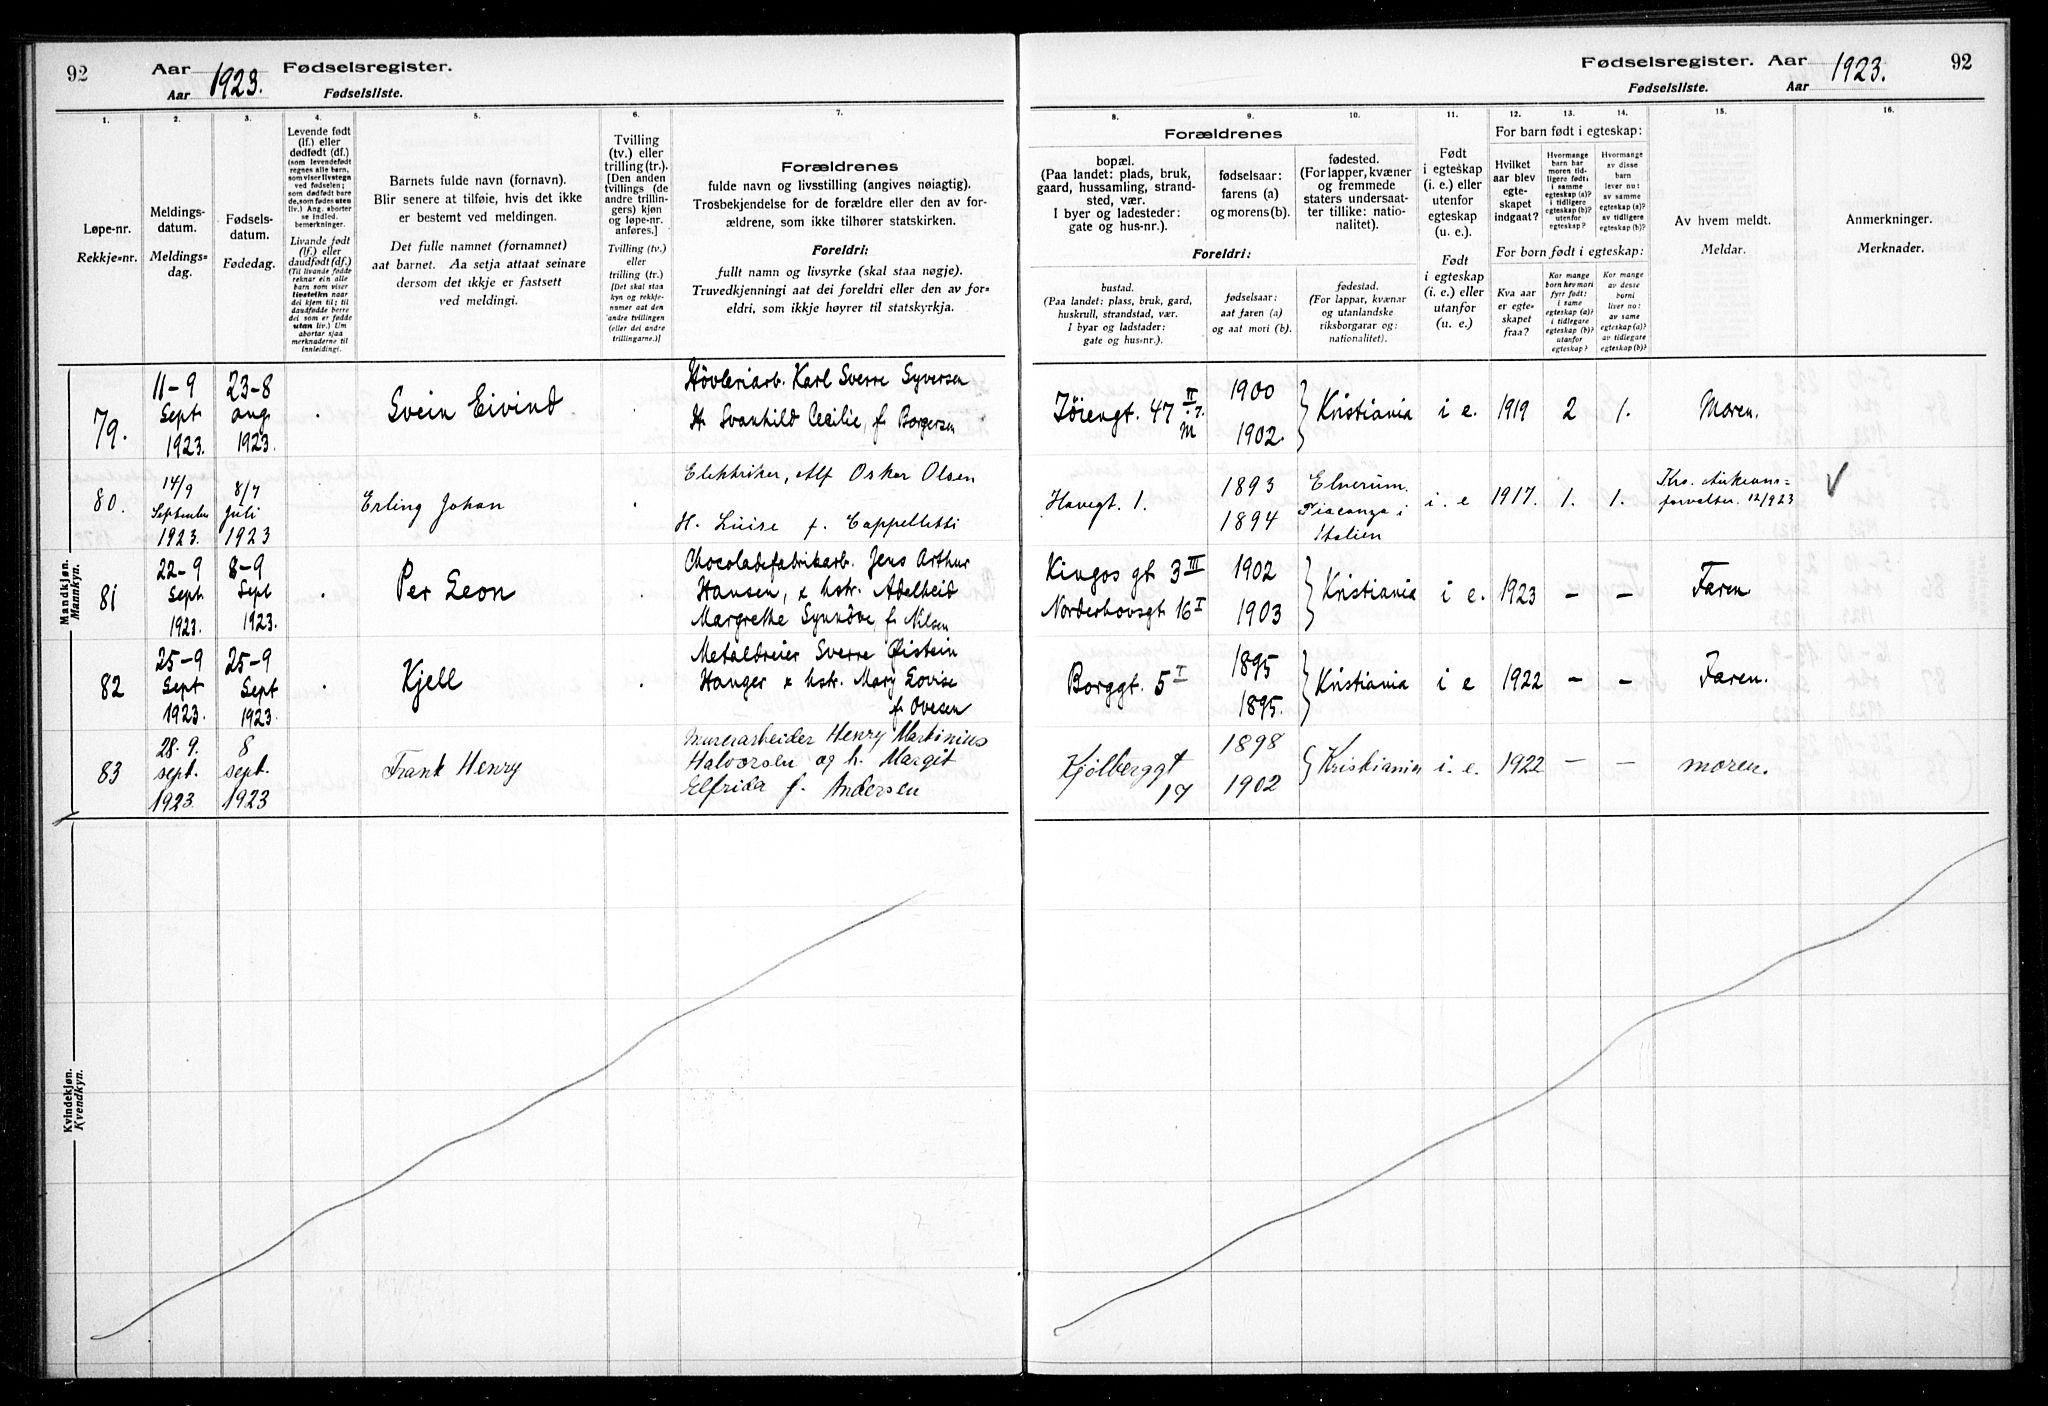 92 Aar 1923. Fødselsregister.
Aar Fødselsliste.
Fødselsregister. Aar 1923. 92
Fødselsliste. Aar
1. 2. 3. 4. 5. 6. 7.
Løpe-nr.
Rekkje-nr.
Meldings-
datum.
Meldings-
dag.
Fødsels-
datum.
Fødedag.
Levende født
(lf.) eller
dødfødt (df.)
(som levendefødt
regnes alle barn,
som viser livstegn
ved fødselen;
som dødfødt bare
de, som fødes uten
liv.) Ang. aborter
se indled.
bemerkninger.
Livande født
(lf.) eller
daudfødt (df.)
(Til livande fødde
reknar ein alle
barn som viser
livsteikn naar
dei kjem til; til
daudfødde berre
dei som er fødde
utan liv.) Um
abortar sjaa
merknaderne til
innleidingi.
Barnets fulde navn (fornavn).
Blir senere at tilføie, hvis det ikke
er bestemt ved meldingen.
Det fulle namnet (fornamnet)
aat barnet. Aa setja attaat seinare
dersom det ikkje er fastsett
ved meldingi.
Tvilling
(tv.) eller
trilling (tr.).
[Den anden
tvillings (de
andre trillin-
gers) kjøn
og løpe-nr.
anføres.]
Tvilling (tv.)
eller
trilling (tr.)
[Det skal staa
kyn og rekkje-
numer aat den
andre tvillingen
(eller dei andre
trillingarne.)]
Forældrenes
fulde navn og livsstilling (angives nøiagtig).
Trosbekjendelse for de forældre eller den av for-
ældrene, som ikke tilhører statskirken.
Foreldri:
fullt namn og livsyrke (skal staa nøgje).
Truvedkjenningi aat dei foreldri eller den av for-
eldri, som ikkje høyrer til statskyrkja.
8. 9. 10. 11. 12. 13. 14. 15. 16.
Forældrenes
bopæl.
(Paa landet: plads, bruk,
gaard, hussamling, strand-
sted, vær.
I byer og ladesteder:
gate og hus-nr.).
fødselsaar:
farens (a)
og morens (b).
fødested.
(For lapper, kvæner
og fremmede
staters undersaat-
ter tillike: natio-
nalitet).
Foreldri:
bustad.
(Paa landet: plass, bruk, gard,
huskrull, strandstad, vær.
I byar og ladstader:
gate og hus-nr.).
fødselsaar:
aat faren (a)
og aat mori (b).
fødestad.
(For lappar, kvænar
og utanlandske
riksborgarar og:
nationalitet).
Født
i egteskap
(i. e.) eller
utenfor
egteskap
(u. e.).
Født
i egteskap
(i. e.) eller
utanfor
(u. e.).
For barn født i egteskap:
Hvilket
aar blev
egte-
skapet
indgaat?
Hvormange
barn har
moren tid-
ligere født:
i samme
egteskap (a)?
i tidligere
egteskap (b)?
utenfor
egteskap?
Hvormange
av disse
barn
lever nu:
av samme
egteskap (a)?
av tidligere
egteskap (b)?
For born født i egteskap:
Kva aar
er egte-
skapet
fraa?
Kor mange
born hev mori
fyrr født:
i same
egteskap (a)?
i tidlegare
egteskap (b)?
utanfor
egteskap?
Kor mange
av desse
borni
liver no:
av same
egteskap (a)?
av tidlegare
egteskap (b)?
Av hvem meldt.
Meldar.
Anmerkninger.
Merknader.
Mandkjøn.
Mannkyn.
79. 11-9 Sept 1923. 23-8 aug. 1923. Svein Eivind
Høvleriarb. Karl Sverre Syversen
H. Svanhild Cecilie, f. Borgersen
Tøiengt. 47 1900 1902. Kristiania i e. 1919 2 1. Moren.
80. 14/9 September 1923. 8/7 Juli 1923 Erling Johan
Elektriker, Alf Oskar Olsen
H. Luise f. Cappelletti
Havegt. 1. 1893 1894 Elverum. Piacenza i Italien i. e 1917. 1. 1. Krs. forvalter. 12/923 ✓
81 22-9 Sept. 1923. 8-9 Sept 1923. Per Leon
Chocoladefabrikarb. Jens Arthur
Hansen, x hstr. Adelheid
Margrethe Synnöve, f. Nilsen
Kingos gt 3 III Norderhovsgt 16 I 1902 1903 Kristiania i e. 1923 – – Faren
82 25-9 Sept 1923. 25-9 Sept 1923. Kjell
Metaldreier Sverre Øistein
Hanger x hstr. Mary Lovise
f. Ovesen
Borggt. 5 I 1895 1895. Kristiania i e 1922 – – Faren.
83 28.9. sept. 1923. 8 sept. 1923 Frank Henry
Murerarbeider Henry Martinius
Halvorsen og h. Margit
Elfrida f. Andersen
Kjølberggt 17 1898 1902 Kristiania i. e. 1922 – – moren.
Kvindekjøn.
Kvendkyn.